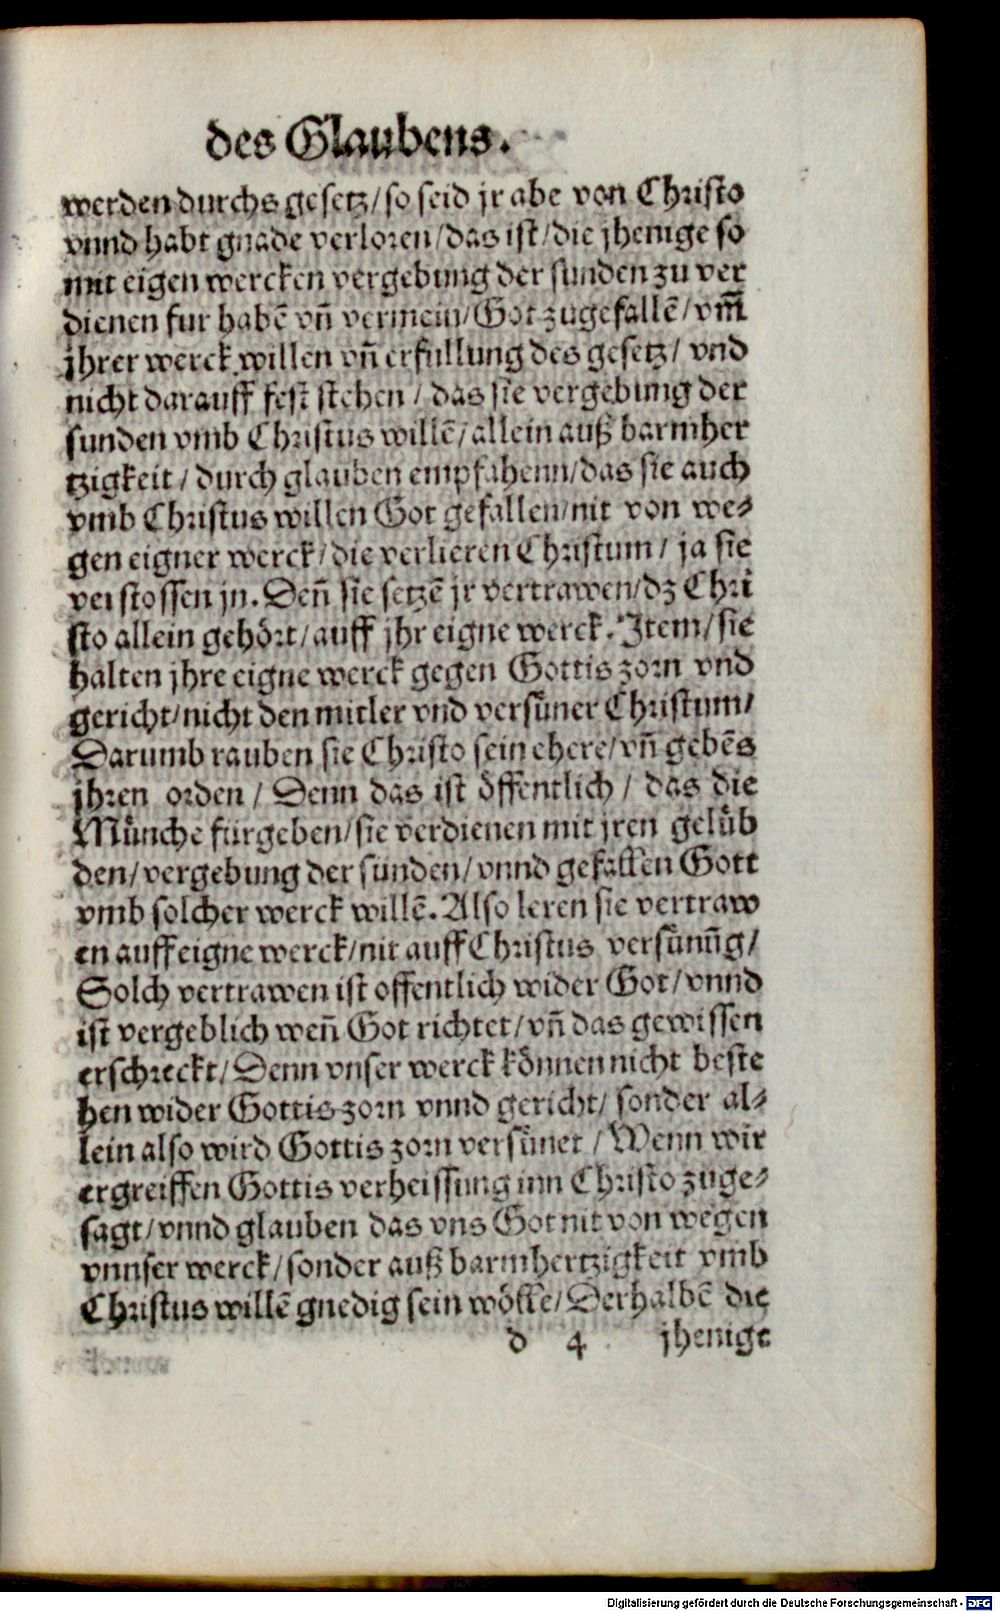 des Glaubens.
werden durchs gesetz/so seid jr abe von Christo
vnnd habt gnade verloren/das ist/die jhenige so
mit eigen wercken vergebung der sunden zu ver
dienen fur habē vn̄ vermein/Got zugefallē/vm̄
jhrer werck willen vn̄ erfullung des gesetz/ vnd
nicht darauff fest stehen / das sie vergebung der
sunden vmb Christus willē/allein auß barmher
tzigkeit / durch glauben empfahenn/das sie auch
vmb Christus willen Got gefallen/nit von we⸗
gen eigner werck/die verlieren Christum / ja sie
verstossen jn. Den̄ sie setzē jr vertrawen/dz Chri
sto allein gehört/auff jhr eigne werck. Item/sie
halten jhre eigne werck gegen Gottis zorn vnd
gericht/nicht den mitler vnd versůner Christum/
Darumb rauben sie Christo sein ehere/vn̄ gebēs
jhren orden / Denn das ist öffentlich / das die
Münche furgeben/sie verdienen mit jren gelüb
den/vergebung der sunden/vnnd gefallen Gott
vmb solcher werck willē. Also leren sie vertraw
en auff eigne werck/nit auff Christus versünūg/
Solch vertrawen ist offentlich wider Got/vnnd
ist vergeblich wen̄ Got richtet/vn̄ das gewissen
erschreckt/Denn vnser werck können nicht beste
hen wider Gottis zorn vnnd gericht/ sonder al⸗
lein also wird Gottis zorn versünet / Wenn wir
ergreiffen Gottis verheissung inn Christo zuge⸗
sagt/vnnd glauben das vns Got nit von wegen
vnnser werck/sonder auß barmhertzigkeit vmb
Christus willē gnedig sein wölle/Derhalbē die
d 4 jhenige
Digitalisierung gefördert durch die Deutsche Forschungsgemeinschaft - DFG